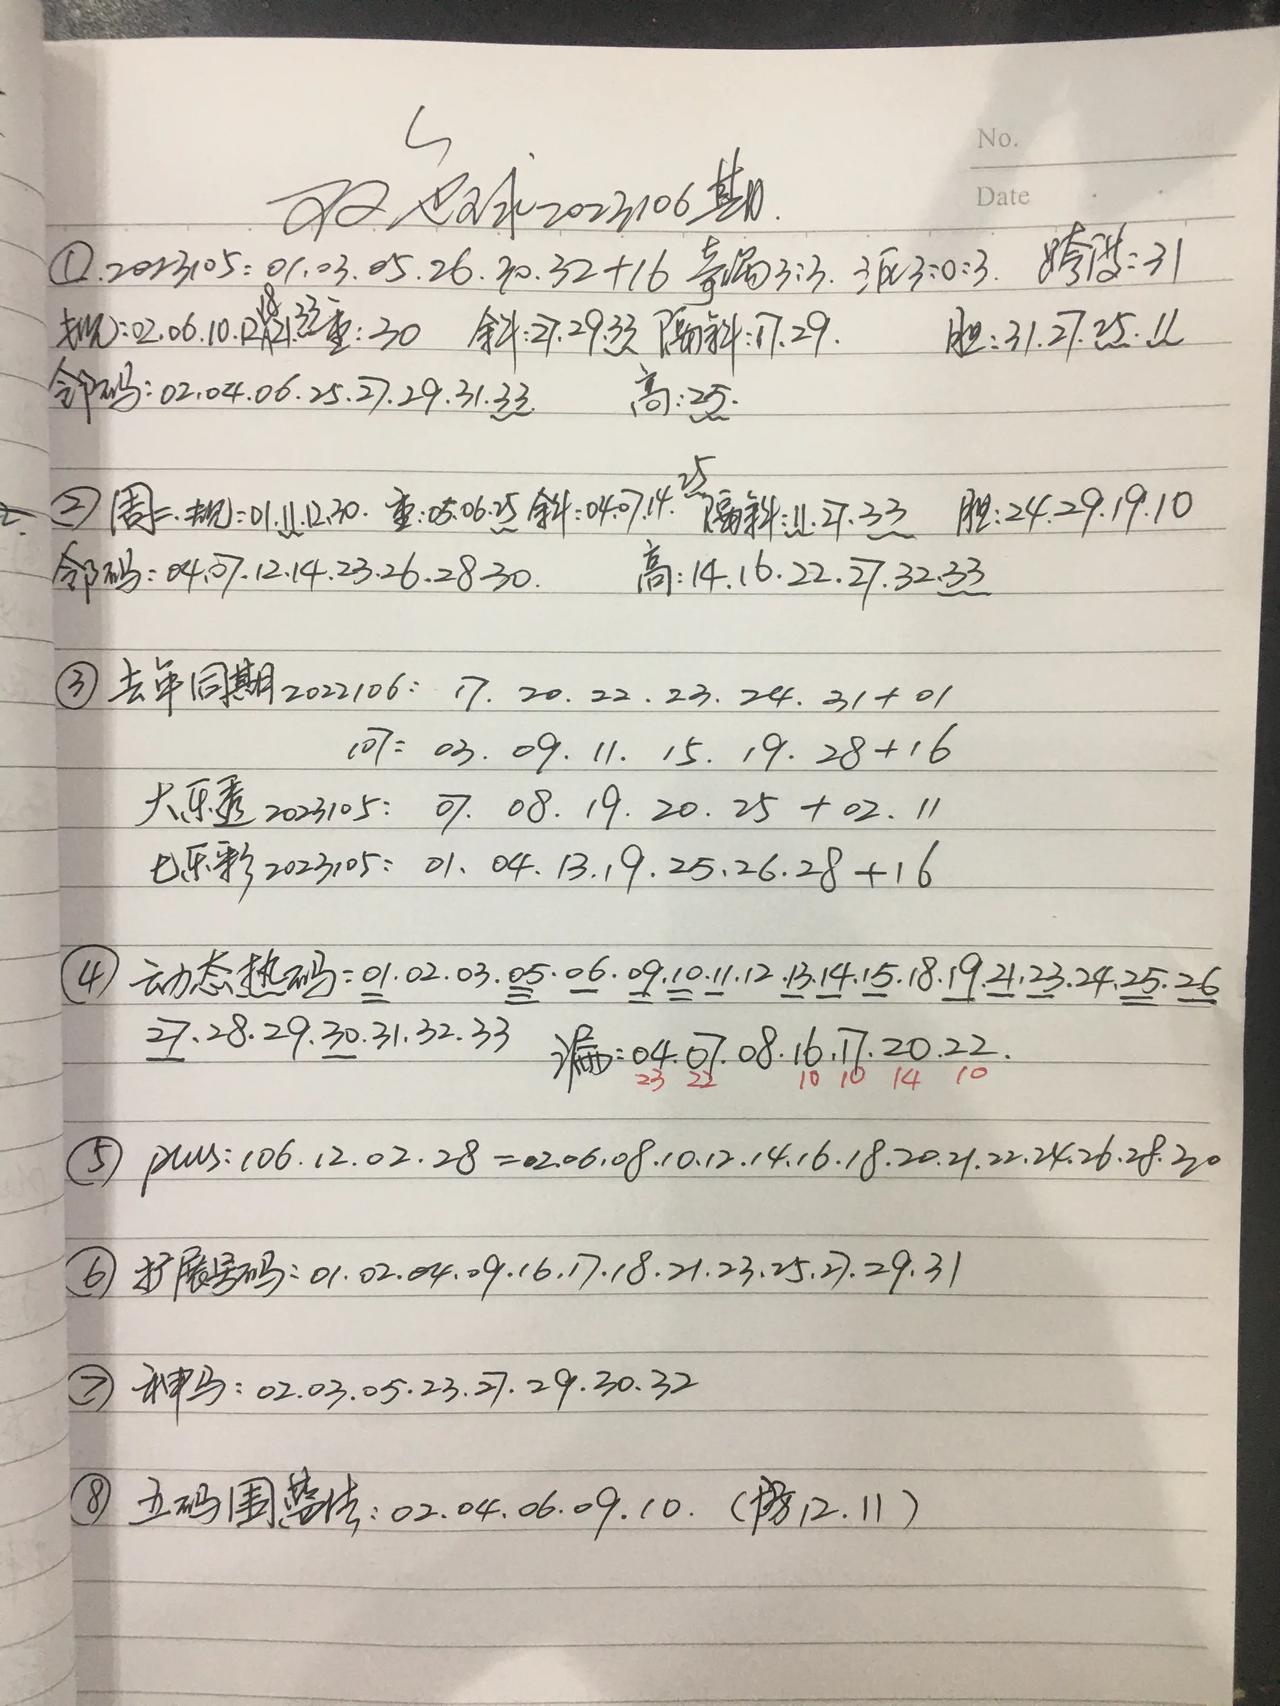 No.
Date
双色球2023106期.
①.2023105:01.03.05.26.30.32+16 奇偶3:3. 三区3:0:3. 跨度:31
规:02.06.10.12.18.21.33 重:30 余斜:27.29.33 隔斜:17.29. 胆:31.27.25.11
邻码:02.04.06.25.27.29.31.33 高:25.
②周二.规:01.11.12.30. 重:05.06.25 余斜:04.07.14.25 隔斜:11.27.33 胆:24.29.19.10
邻码:04.07.12.14.23.26.28.30. 高:14.16.22.27.32.33
③去年同期2022106: 17.20.22.23.24.31+01
107: 03.09.11.15.19.28+16
大乐透2023105: 07.08.19.20.25+02.11
七乐彩2023105: 01.04.13.19.25.26.28+16
④动态热码:01.02.03.05.06.09.10.11.12.13.14.15.18.19.21.23.24.25.26
27.28.29.30.31.32.33 漏:04.07.08.16.17.20.22.
23 22 10 10 14 10
⑤plus:106.12.02.28=02.06.08.10.12.14.16.18.20.21.22.24.26.28.30
⑥扩展号码:01.02.04.09.16.17.18.21.23.25.27.29.31
⑦神马:02.03.05.23.27.29.30.32
⑧五码围蓝法:02.04.06.09.10.(防12.11)